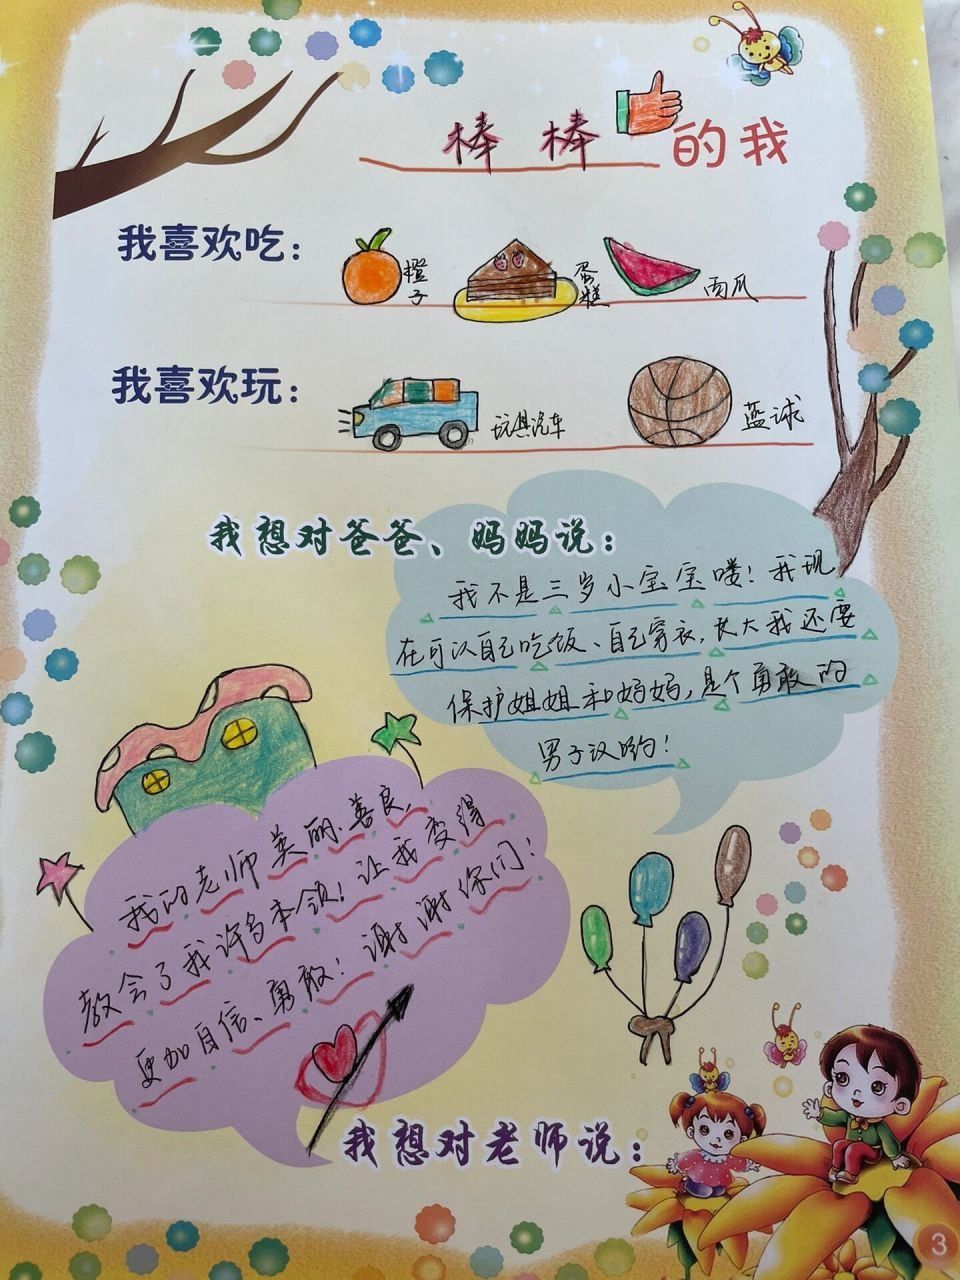 棒棒的我
我喜欢吃：
橙子
蛋糕
西瓜
我喜欢玩：
玩具汽车
蓝球
我想对爸爸、妈妈说：
我不是三岁小宝宝喽！我现
在可以自己吃饭、自己穿衣，长大我还要
保护姐姐和妈妈，是个勇敢的
男子汉哟！
我的老师美丽、善良，
教会了我许多本领！让我变得
更加自信、勇敢！谢谢你们！
我想对老师说：
3